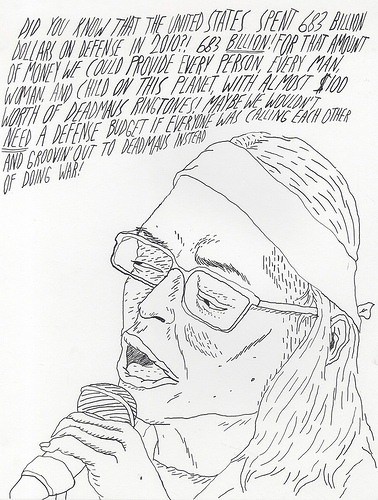 DID YOU KNOW THAT THE UNITED STATES SPENT 683 BILLION
DOLLARS ON DEFENSE IN 2010?! 683 BILLION! FOR THAT AMOUNT
OF MONEY WE COULD PROVIDE EVERY PERSON, EVERY MAN,
WOMAN, AND CHILD ON THIS PLANET, WITH ALMOST $100
WORTH OF DEADMAUS RINGTONES! MAYBE WE WOULDN'T
NEED A DEFENSE BUDGET IF EVERYONE WAS CALLING EACH OTHER
AND GROOVIN' OUT TO DEADMAUS INSTEAD
OF DOING WAR!